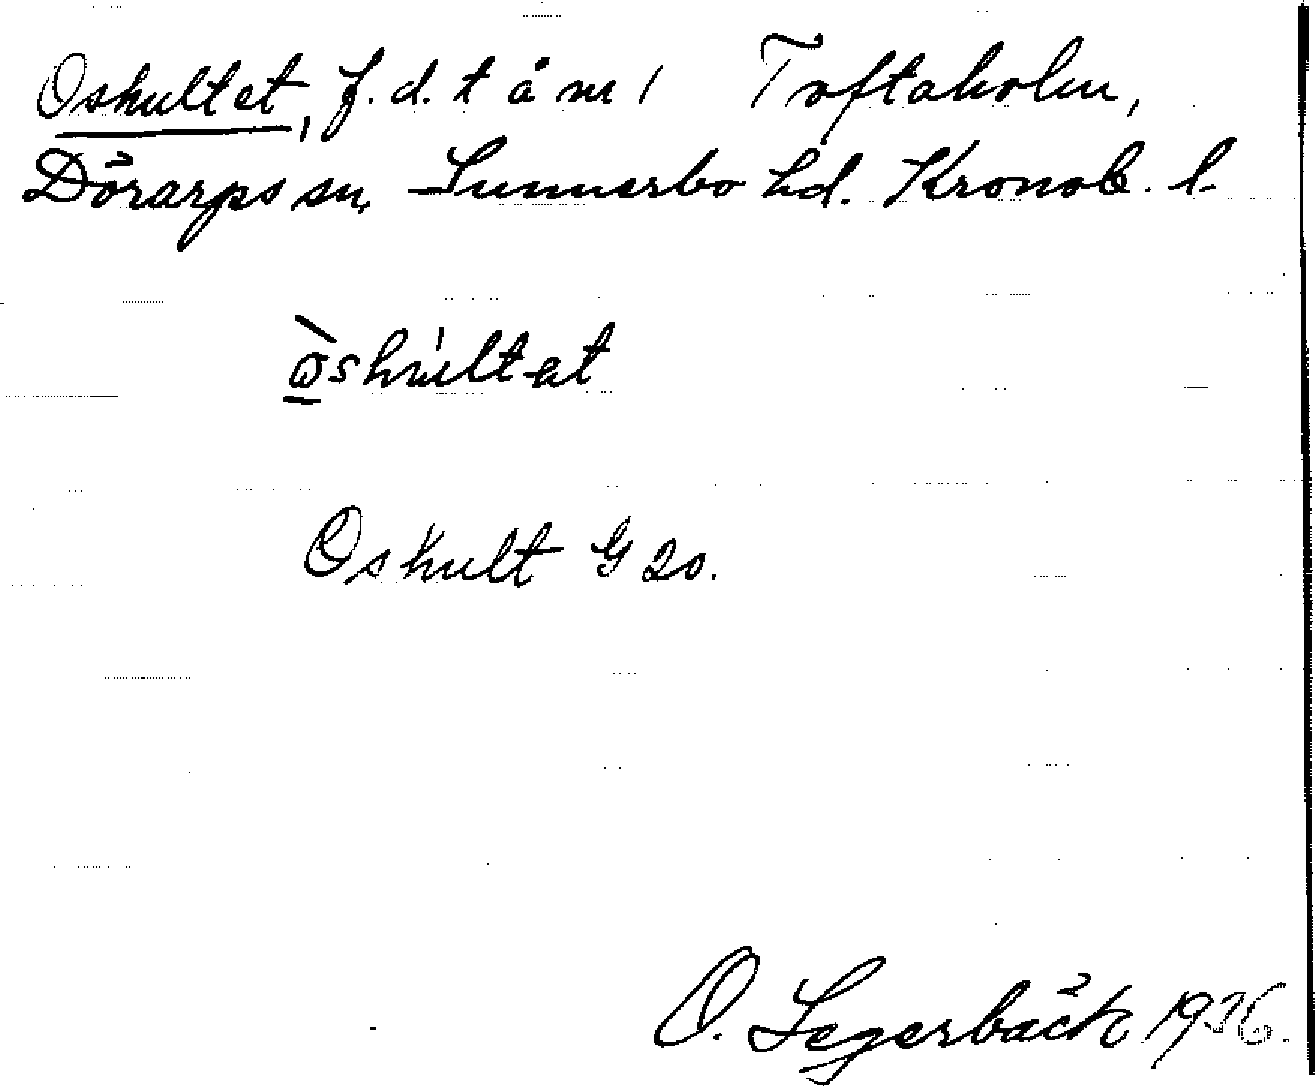 Oskultet, f.d. t å nr 1 Toftaholm,
Dörarps sn, Sunnerbo hd. Kronob. l.
ò̱̱skúltət
Oskult G 20.
O. Segerbäck 1936.